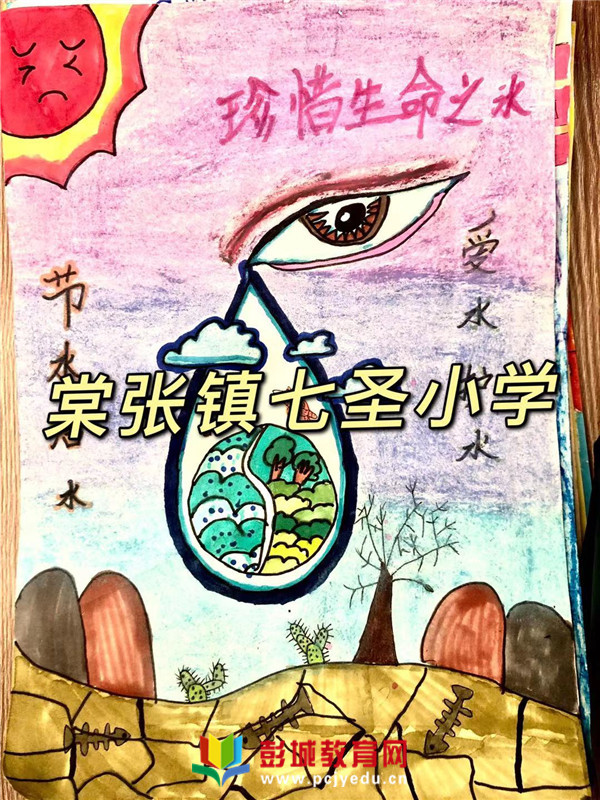 珍惜生命之水
节水
水
爱水
水
棠张镇七圣小学
彭城教育网
www.pcjyedu.cn